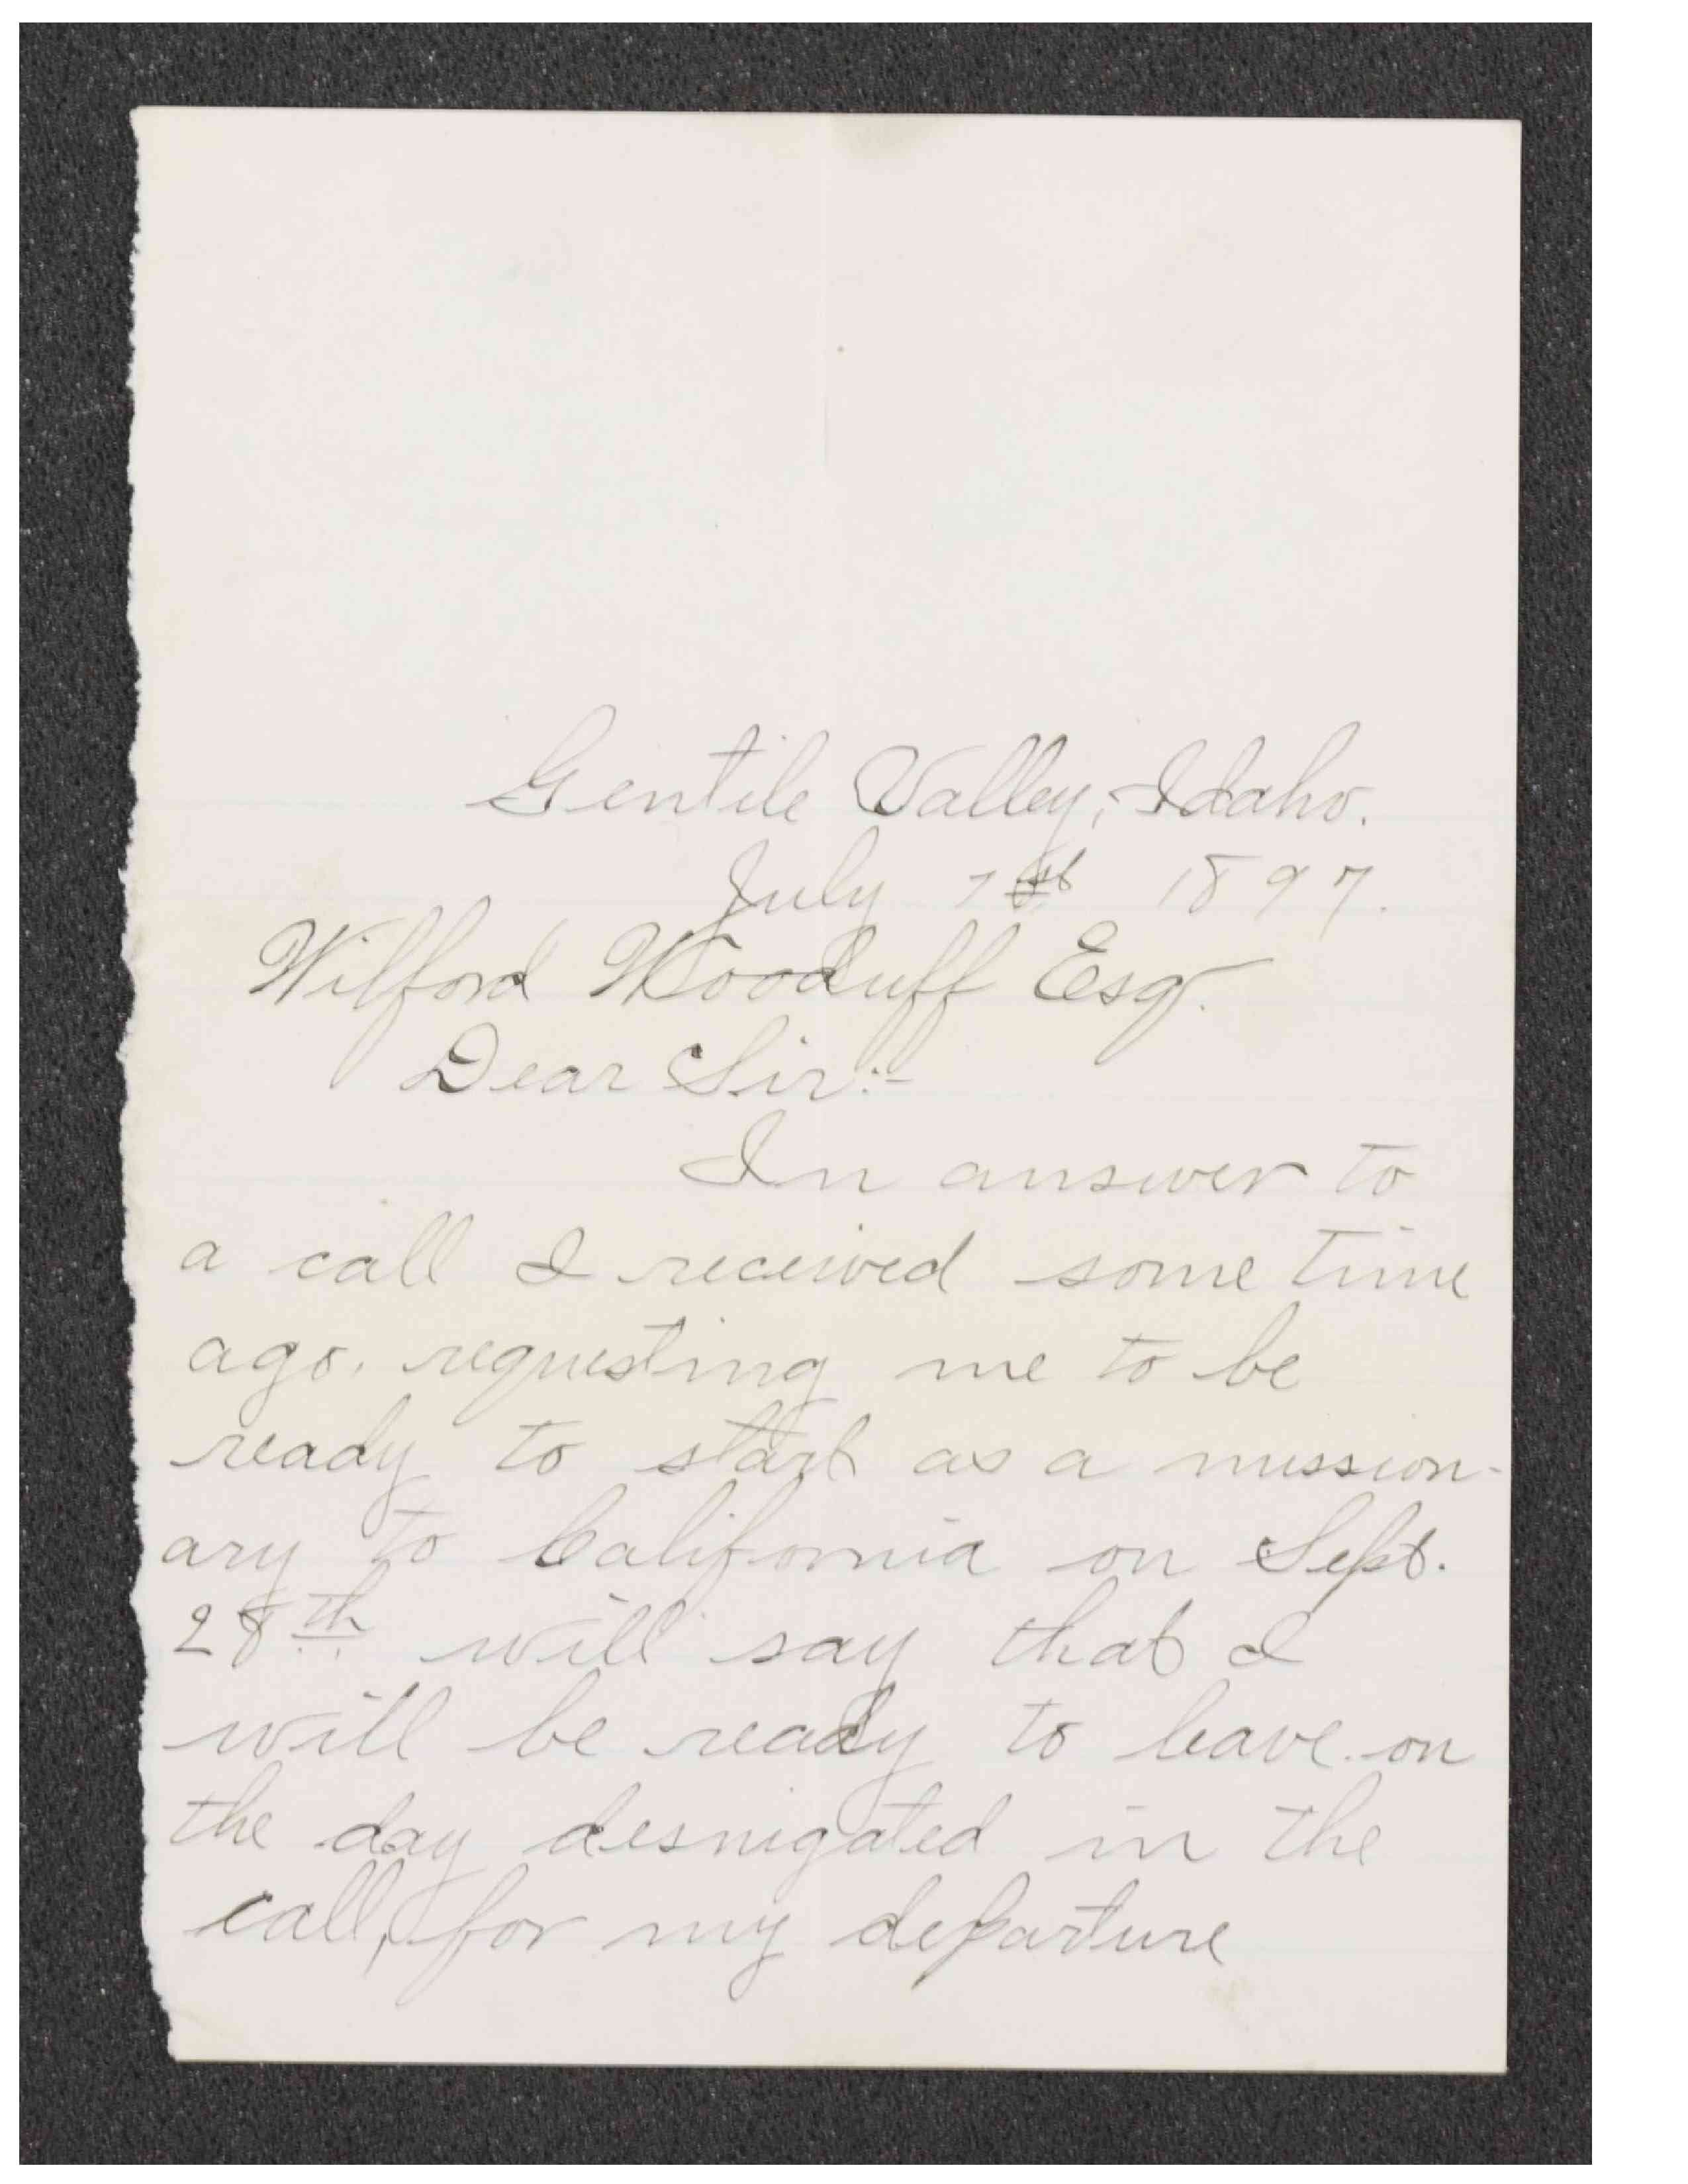 Gentile Valley, Idaho.
July 1st 1897.
Wilford Wooduff Esq.
Dear Sir:-
In answer to
a call I received some time
ago, requesting me to be
ready to start as a mission-
ary to California on Sept.
28th will say that I
will be ready to leave on
the day desnigated in the
call, for my departure